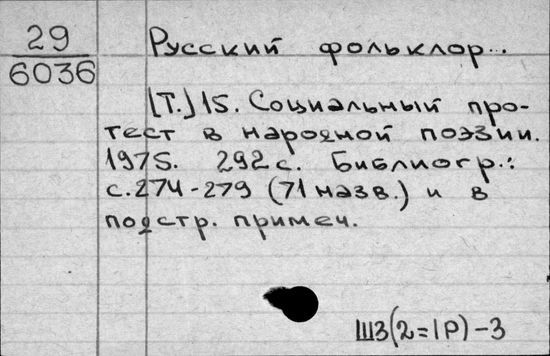 29
6036
Русский фольклор...
[Т.] 15. Социальный про-
тест в народной поэзии.
1975. 292 с. Библиогр.:
с. 274-279 (71 назв.) и в
подстр. примеч.
Ш3(2=1Р)-3